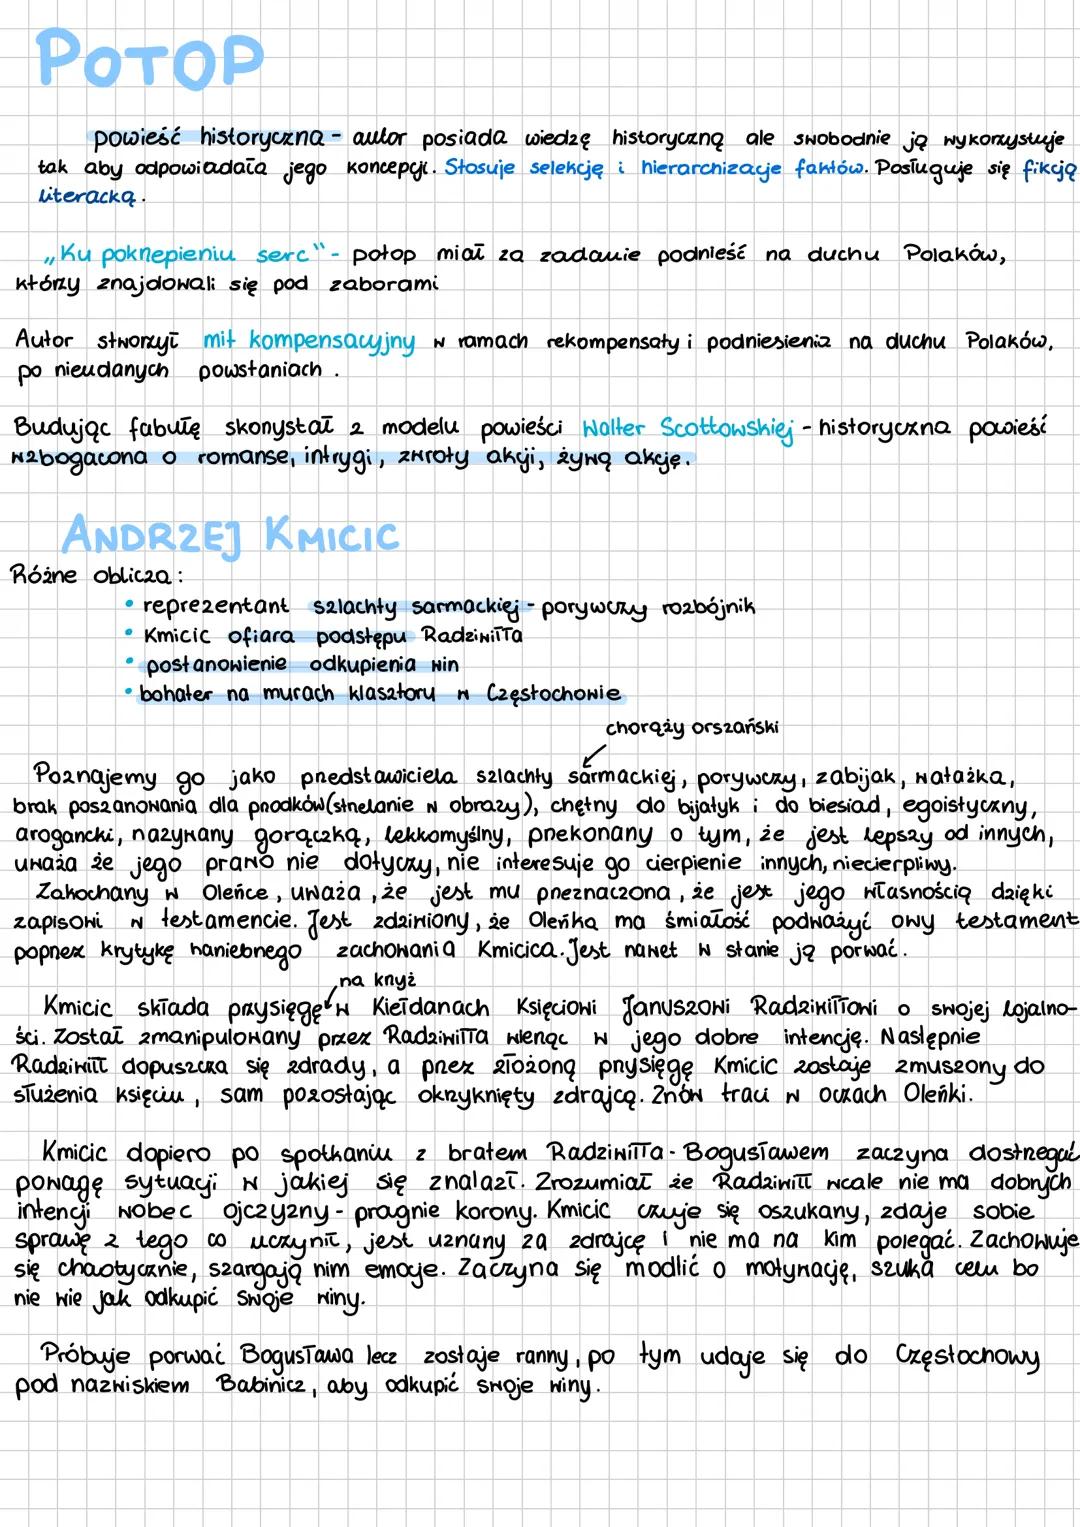 POTOP
powieść historyczna - autor posiada wiedzę historyczną ale swobodnie ją wykorzystuje
tak aby odpowiadała jego koncepcji. Stosuje selekcję i hierarchizacje faktów. Posługuje się fikcją
literacką.
„Ku pokrzepieniu serc" - potop miał za zadanie podnieść na duchu Polaków,
którzy znajdowali się pod zaborami
Autor stworzył mit kompensacyjny w ramach rekompensaty i podniesienia na duchu Polaków,
po nieudanych powstaniach.
Budując fabułę skorzystał z modelu powieści Walter Scottowskiej - historyczna powieść
wzbogacona o romanse, intrygi, zwroty akcji, żywą akcję.
ANDRZEJ KMICIC
Różne oblicza:
• reprezentant szlachty sarmackiej - porywczy rozbójnik
• Kmicic ofiara podstępu Radziwiłła
• postanowienie odkupienia win
• bohater na murach klasztoru w Częstochowie
chorąży orszański
Poznajemy go jako przedstawiciela szlachty sarmackiej, porywczy, zabijak, watażka,
brak poszanowania dla przodków (strzelanie w obrazy), chętny do bijatyk i do biesiad, egoistyczny,
arogancki, nazywany gorączką, lekkomyślny, przekonany o tym, że jest lepszy od innych,
uważa że jego prawo nie dotyczy, nie interesuje go cierpienie innych, niecierpliwy.
Zakochany w Oleńce, uważa, że jest mu przeznaczona, że jest jego własnością dzięki
zapisowi w testamencie. Jest zdziwiony, że Oleńka ma śmiałość podważyć owy testament
poprzez krytykę haniebnego zachowania Kmicica. Jest nawet w stanie ją porwać.
na krzyż
Kmicic składa przysięgę w Kiejdanach Księciowi Januszowi Radziwiłłowi o swojej lojalno-
ści. Został zmanipulowany przez Radziwiłła wierząc w jego dobre intencję. Następnie
Radziwiłł dopuszcza się zdrady, a przez złożoną przysięgę Kmicic zostaje zmuszony do
służenia księciu, sam pozostając okrzyknięty zdrajcą. Znów traci w oczach Oleńki.
Kmicic dopiero po spotkaniu z bratem Radziwiłła - Bogusławem zaczyna dostrzegać
powagę sytuacji w jakiej się znalazł. Zrozumiał że Radziwiłł wcale nie ma dobrych
intencji wobec ojczyzny - pragnie korony. Kmicic czuje się oszukany, zdaje sobie
sprawę z tego co uczynił, jest uznany za zdrajcę i nie ma na kim polegać. Zachowuje
się chaotycznie, szargają nim emocje. Zaczyna się modlić o motywację, szuka celu bo
nie wie jak odkupić swoje winy.
Próbuje porwać Bogusława lecz zostaje ranny, po tym udaje się do Częstochowy
pod nazwiskiem Babinicz, aby odkupić swoje winy.